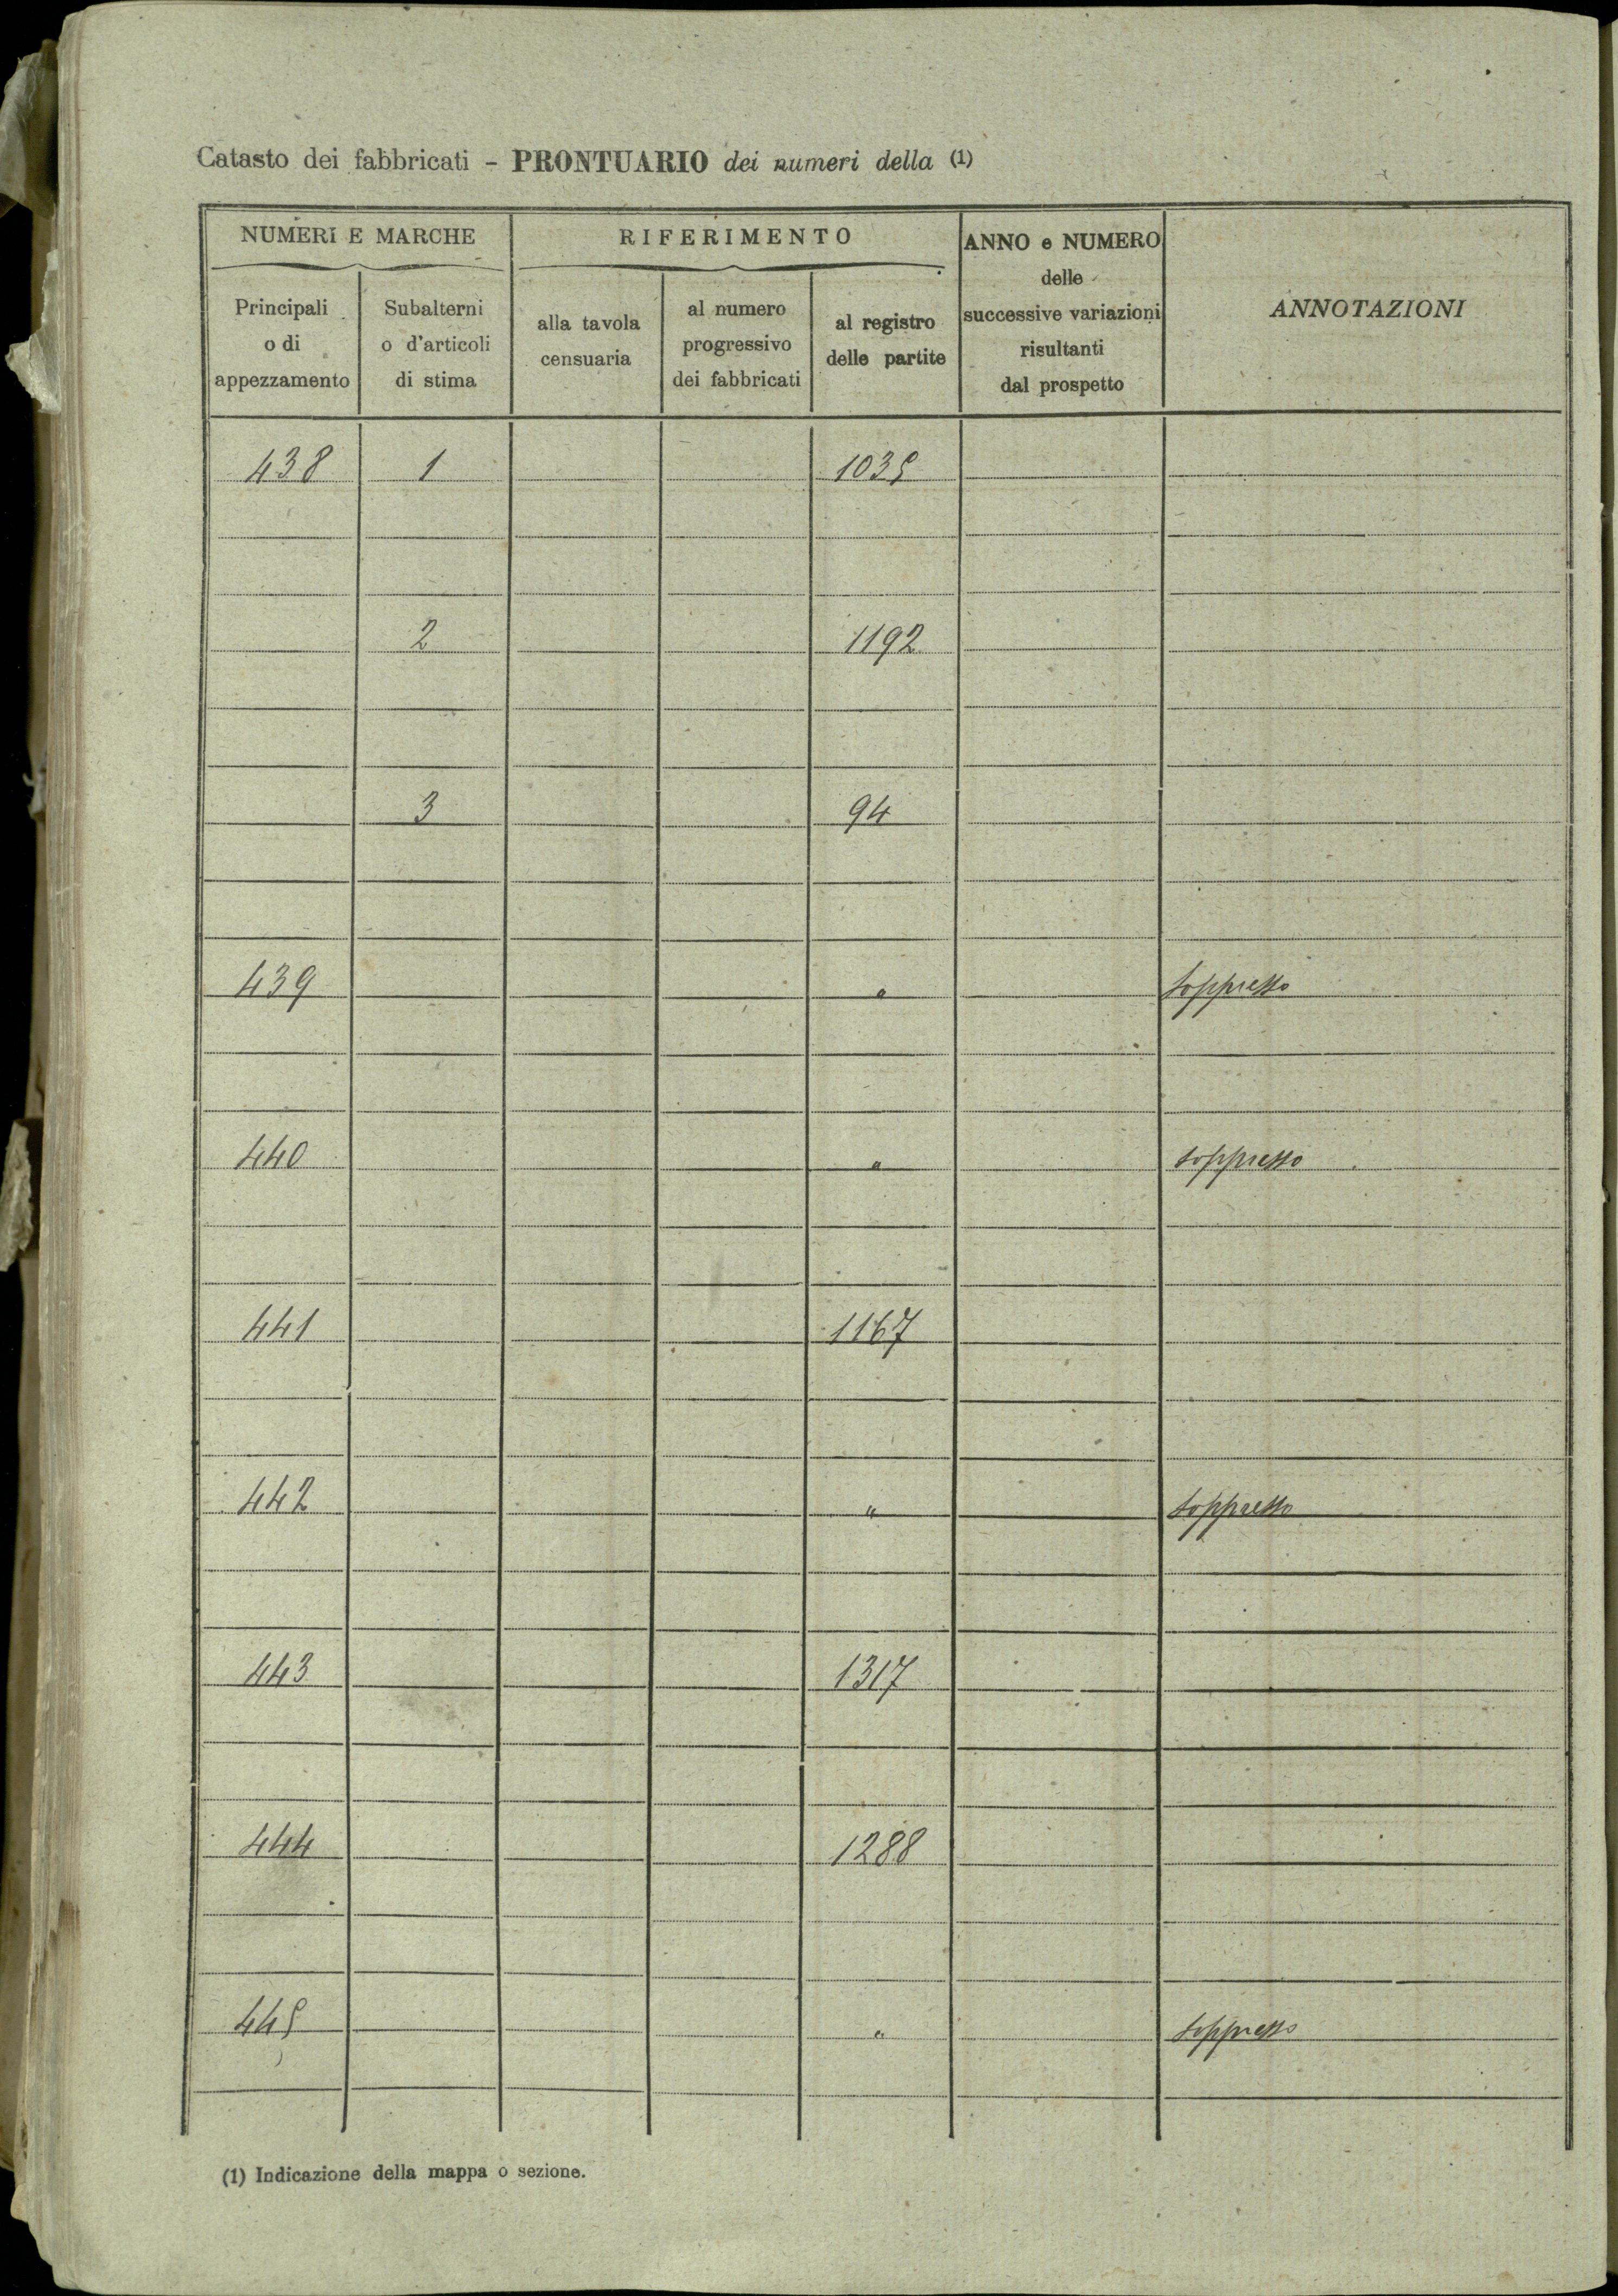 Catasto dei fabbricati – PRONTUARIO dei numeri della (1)
NUMERI E MARCHE
RIFERIMENTO
ANNO e NUMERO
delle
successive variazioni
risultanti
dal prospetto
ANNOTAZIONI
Principali
o di
appezzamento
Subalterni
o d'articoli
di stima
alla tavola
censuaria
al numero
progressivo
dei fabbricati
al registro
delle partite
438 1 1035
2 1192
3 94
439 " soppresso
440 " soppresso
441 1167
442 " soppresso
443 1317
444 1288
445 " soppresso
(1) Indicazione della mappa o sezione.